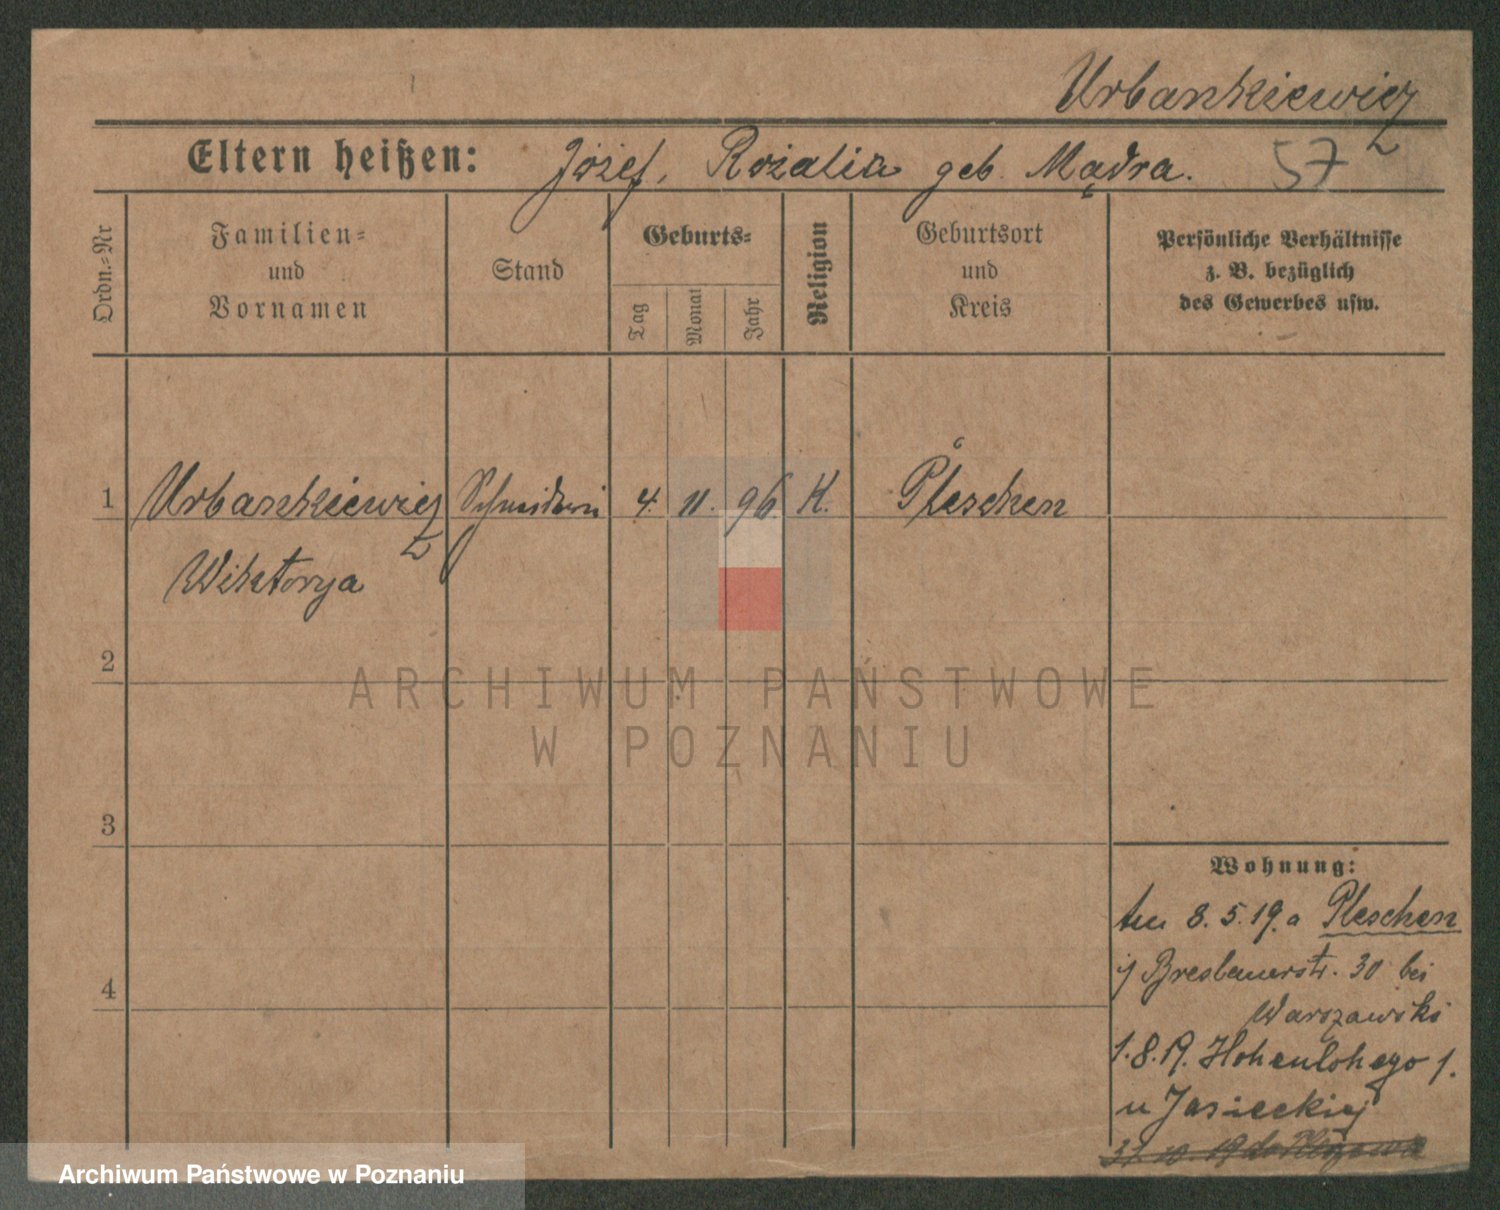 Urbankiewicz
Eltern heißen: Józef, Rozalia geb. Mądra. 57
Ordn.-Nr
Familien-
und
Vornamen
Stand
Geburts-
Tag
Monat
Jahr
Religion
Geburtsort
und
Kreis
Persönliche Verhältnisse
z. B. bezüglich
des Gewerbes usw.
1 Urbankiewicz Schneiderin 4. 11. 96. K. Pleschen
Wiktorya
2
ARCHIWUM PAŃSTWOWE
W POZNANIU
3
4
Wohnung:
8.5.19. a Pleschen
Breslauerstr. 30 bei
Warszawski
1.8.19. Hohenlohego 1.
u Jasieckiej
31.10.19 do
Archiwum Państwowe w Poznaniu